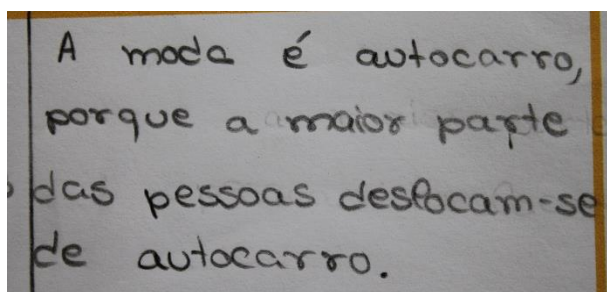 A moda é autocarro,
porque a maior parte
das pessoas deslocam-se
de autocarro.